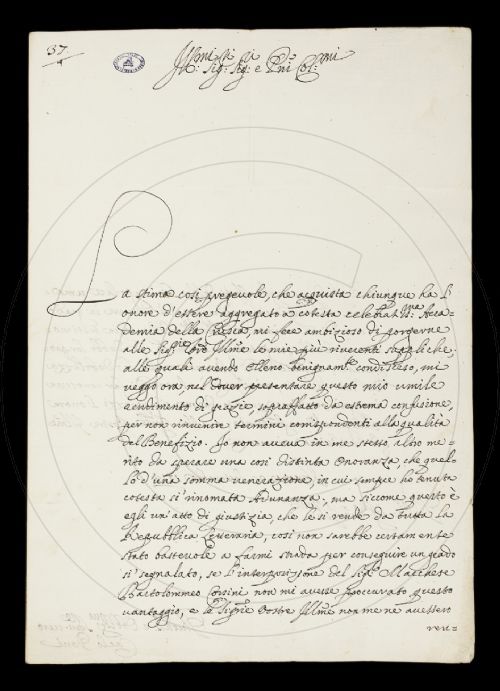 37
Ill:mi Sig:ri Sig:ri e P:ni Col:mi
La stima così pregevole, che acquista chiunque ha l'
onore d'essere aggregato a cotesta celebrat:ma Acca=
demia della Crusca, mi fece ambizioso di porgerne
alle Sig:rie Loro Ill:me le mie più riverenti suppliche;
alle quali avendo Elleno benignam:te condisceso, mi
veggo ora, nel dover presentare questo mio umile
rendimento di grazie, sopraffatto da estrema confusione,
per non rinvenire termini corrispondenti alla qualità
del Benefizio. Io non aveva in me stesso altro me=
rito da sperare una così distinta Onoranza, che quel=
lo d'una somma venerazione, in cui sempre ho tenuta
cotesta sì rinomata Adunanza; ma siccome questo è
egli un'atto di giustizia, che le si rende da tutta la
Repubblica Letteraria, così non sarebbe certamente
stato bastevole a farmi strada per conseguire un grado
sì segnalato, se l'interposizione del Sig:r Marchese
Bartolommeo Corsini non mi avesse proccurato questo
vantaggio, e le Signorie Vostre Ill:me non me ne avessero
ren=